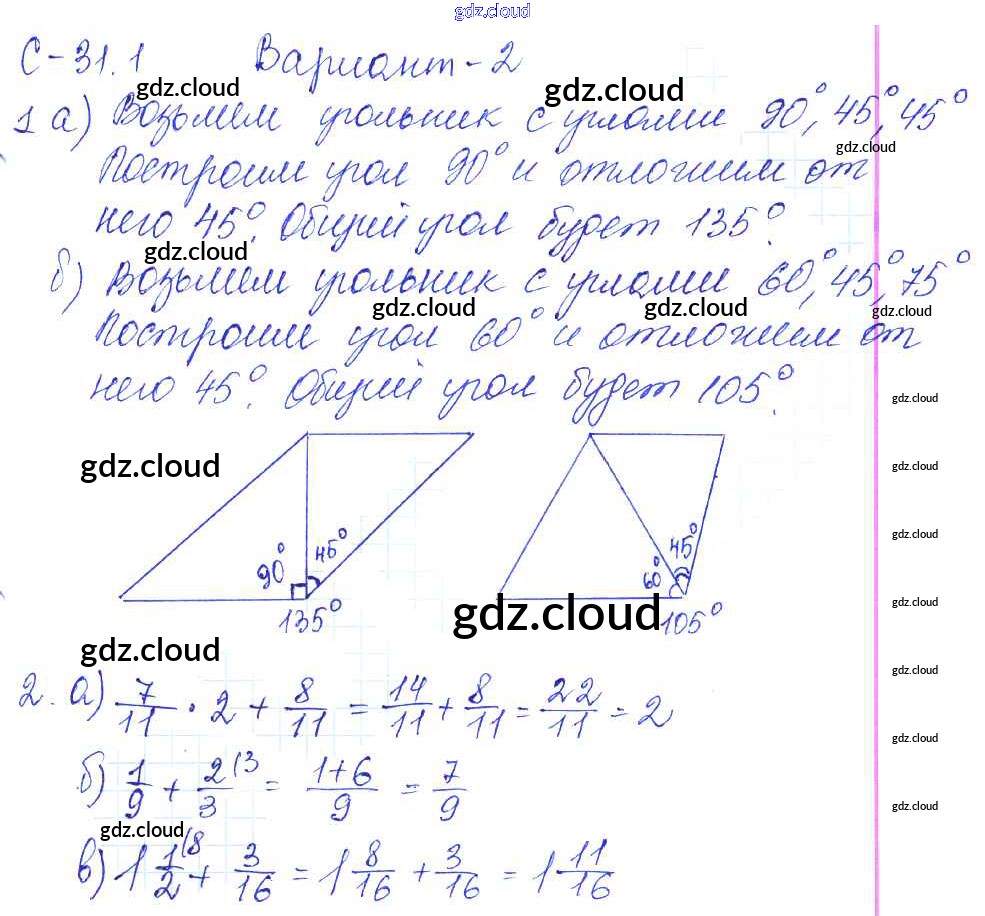 gdz.cloud
С-31.1 Вариант-2
gdz.cloud gdz.cloud
1 а) Возьмем угольник с углами 90°, 45°, 45°
gdz.cloud
Построим угол 90° и отложим от
него 45°. Общий угол будет 135°.
gdz.cloud
б) Возьмем угольник с углами 60°, 45°, 75°
gdz.cloud gdz.cloud gdz.cloud
Построим угол 60° и отложим от
него 45°. Общий угол будет 105°.
gdz.cloud
gdz.cloud gdz.cloud
gdz.cloud
90° 45° 60° 45°
gdz.cloud gdz.cloud
135° 105°
gdz.cloud gdz.cloud
2. а) 7/11 · 2 + 8/11 = 14/11 + 8/11 = 22/11 = 2
gdz.cloud
б) 1/9 + 2(3/3 = 1+6/9 = 7/9
gdz.cloud
gdz.cloud
в) 1 1(8/2 + 3/16 = 1 8/16 + 3/16 = 1 11/16